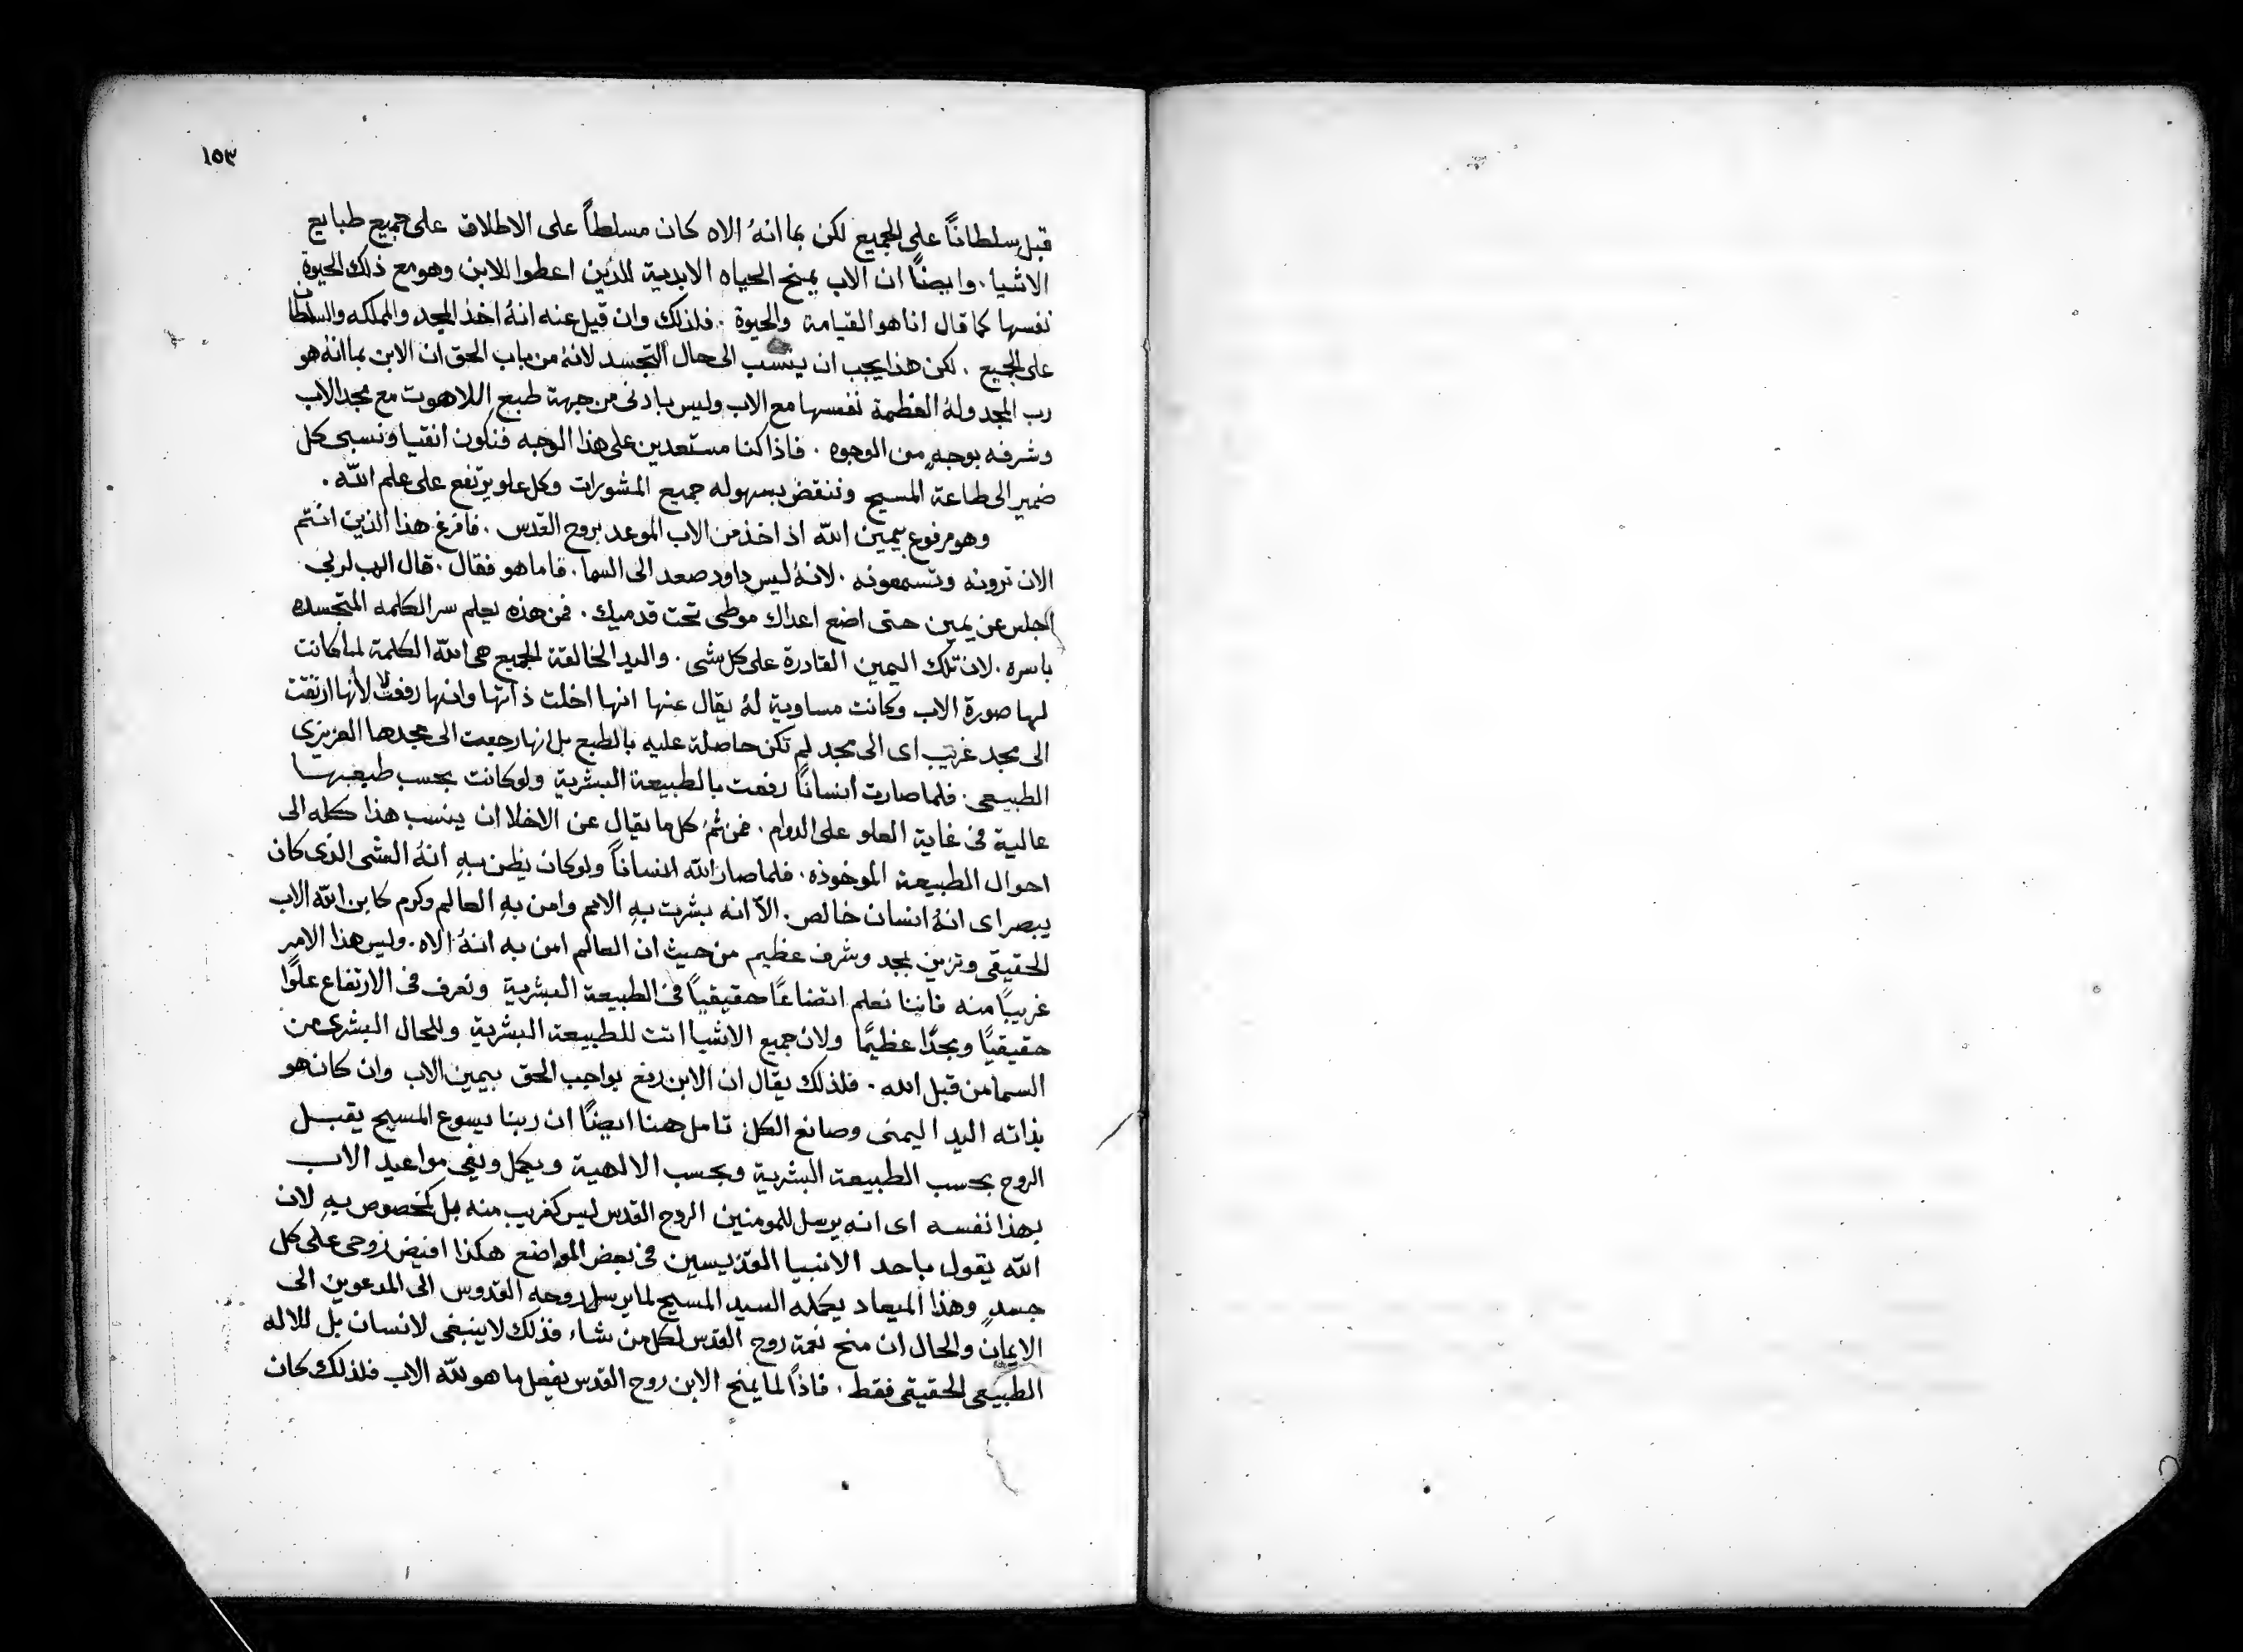 ١٥٣
قبل سلطاناً على الجميع لكن بما انهُ الاه كان مسلطاً على الاطلاق على جميع طبايع
الاشيا . وايضاً ان الاب يمنح الحياه الابدية للذين اعطوا للابن وهو مع ذلك الحيوة
نفسها كما قال انا هو القيامة والحيوة . فلذلك وان قيل عنه انهُ اخذ المجد والمملكه والسلطان
على الجميع . لكن هذا يجب ان ينسب الى حال التجسد لانهُ من باب الحق ان الابن بما انهُ هو
رب المجد ولهُ العظمة نفسها مع الاب وليس بادنى من جهة طبع اللاهوت مع مجد الاب
وشرفه بوجهٍ من الوجوه . فاذا كنا مستعدين على هذا الوجه فنكون اتقيا ونسبى كل
ضمير الى طاعة المسيح وننقض بسهوله جميع المشورات وكل علو يرتفع على علم الله .
وهو مرفوع بيمين الله اذ اخذ من الاب الموعد بروح القدس . فافرغ هذا الذين انتم
الان ترونه وتسمعونه . لانهُ ليس داود صعد الى السما . فاما هو فقال . قال الرب لربى
اجلس عن يمين حتى اضع اعداك موطى تحت قدميك . فمن هذه يعلم سر الكلمه المتجسده
باسره . لان تلك اليمين القادرة على كل شى . واليد الخالقة الجميع هى الله الكلمة لما كانت
لها صورة الاب وكانت مساوية لهُ يقال عنها انها اخلت ذاتها وانها رفعت لا لأنها ارتقت
الى مجد غريب اى الى مجد لم تكن حاصلة عليه بالطبع بل انها رجعت الى مجدها العزيزى
الطبيعى . فلما صارت أنساناً رفعت بالطبيعة البشرية ولو كانت بحسب طبعها
عالية فى غاية العلو على الدوام . فمن ثمُ كل ما يقال عن الاخلا ان ينسب هذا كله الى
احوال الطبيعة الموخوذه . فلما صار الله انساناً ولو كان يظن بهِ انهُ الشى الذى كان
يبصر اى انهُ انسان خالص . الّا انه بشرت بهِ الامم وامن بهِ العالم وكرم كابن الله الاب
الحقيقى وتزين بمجد وشرف عظيم من حيث ان العالم امن به انهُ الاه . وليس هذا الامر
غريباً منه فاننا نعلم اتضاعاً حقيقياً فى الطبيعة البشرية ونعرف فى الارتفاع علوًا
حقيقياً ومجدًا عظيمًا ولان جميع الاشيا اتت للطبيعة البشرية وللحال البشرى من
السما من قبل الله . فلذلك يقال ان الابن رفع بواجب الحق بيمين الاب وان كان هو
بذاته اليد اليمنى وصانع الكل تامل هنا ايضاً ان ربنا يسوع المسيح يقبل
الروح بحسب الطبيعة البشرية وبحسب الالهية ويكمل ويفى مواعيد الاب
بهذا نفسه اى انه يرسل للمومنين الروح القدس ليس كغريب منه بل كمخصوص بهِ لان
الله يقول باحد الانبيا القديسين فى بعض المواضع هكذا افيض روحى على كل
جسدٍ وهذا الميعاد يكمله السيد المسيح لما يرسل روحه القدوس الى المدعوين الى
الايمان والحال ان منح نعمة روح القدس لكل من شاء فذلك لا ينبغى لانسان بل للاله
الطبيعى الحقيقى فقط . فاذاً لما يمنح الابن روح القدس يفعل ما هو لله الاب فلذلك كان